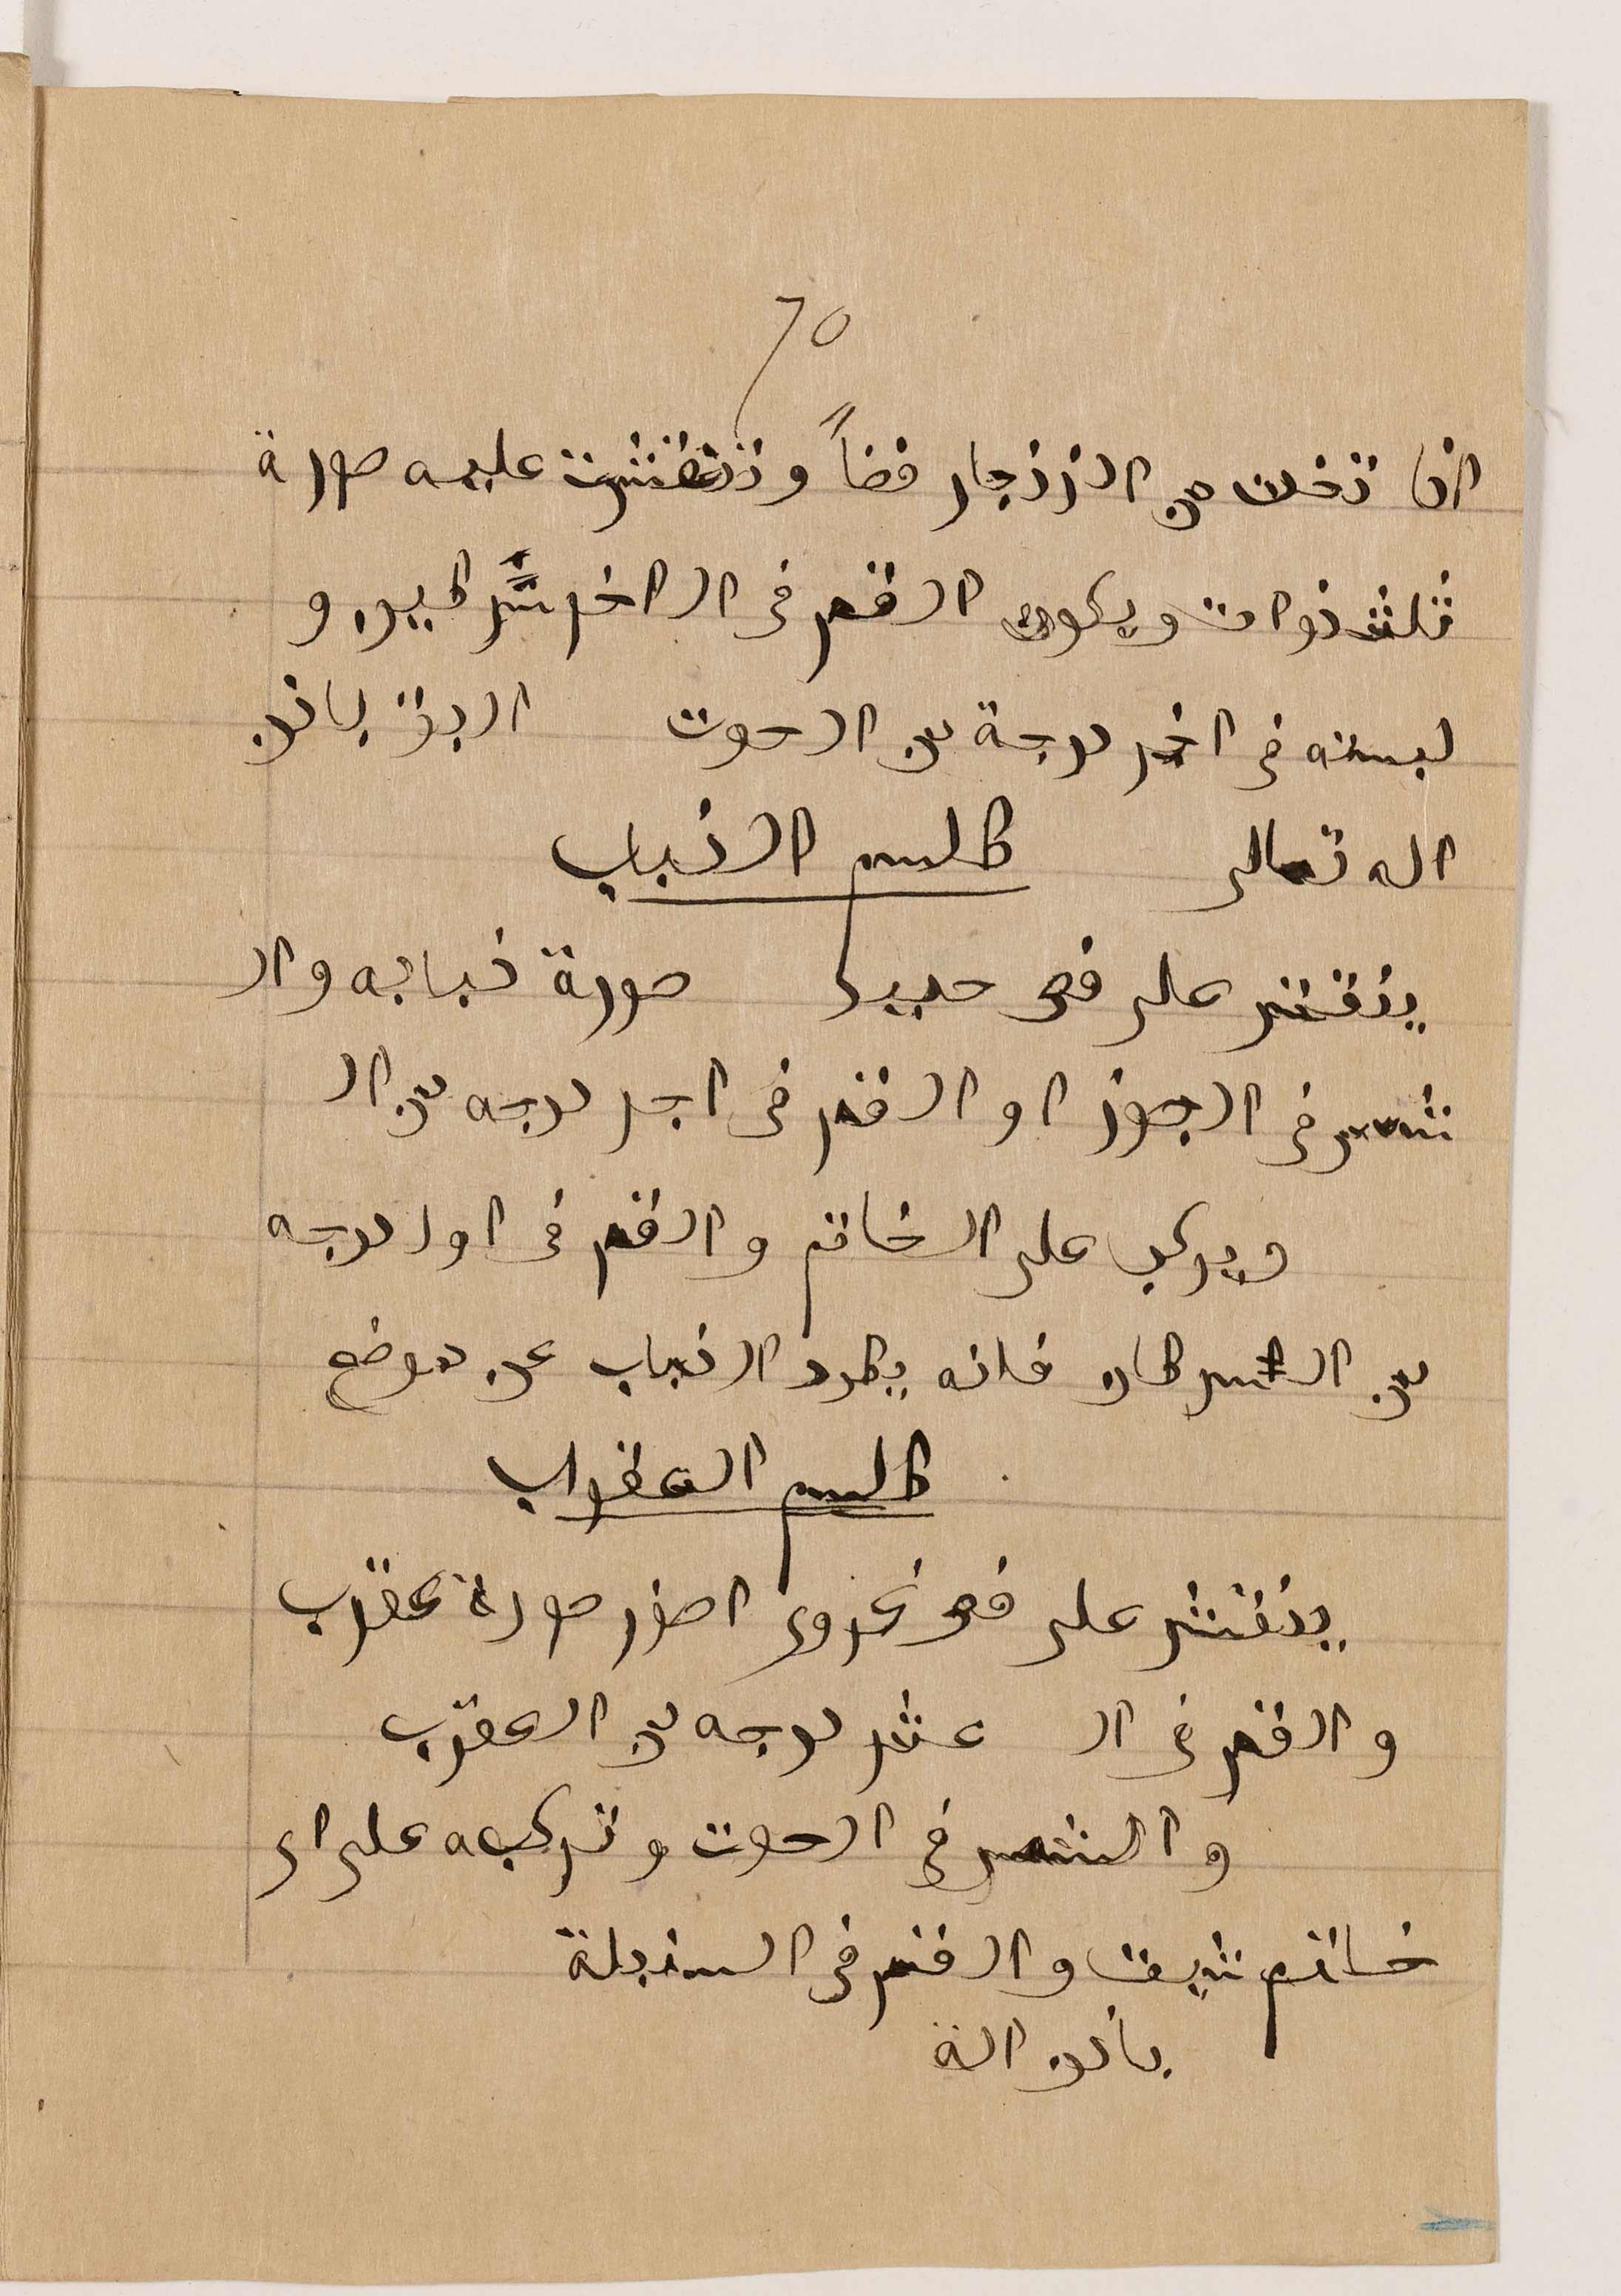 ٦٥
اذا تخذت من الزنجار فصاً ونقشت عليه صورة
ثلث ذوات ويكون القمر فى ال اخر كبير و
لبسته فى اخر درجة من الحوت البق باذن
اله تعالى طلسم الذباب
ينقش على فص حديد صورة ذبابه وال
شمس فى الجوزا و القمر فى اجر درجه من ال
ويركب على الخاتم والقمر فى اول درجه
من السرطان فانه يطرد الذباب عن موضع
طلسم العقراب
ينقش على فص اصفر صورة عقرب
والقمر فى ال عشر درجه من العقرب
والشمس فى الحوت وتركبه على اى
خاتم شيت والقمر فى السنبلة
باذن الله